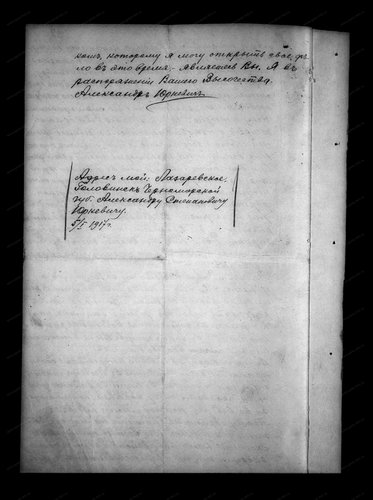 комъ, которому я могу открыть свое дѣ-
ло въ это время, - являетесь Вы. Я въ
распоряженіи Вашего Высочества.
Александръ Юркевичъ
Адресъ мой: Лазаревское,
Головинскъ Черноморской
губ. Александру Степановичу
Юркевичу.
5/I 1917 г.